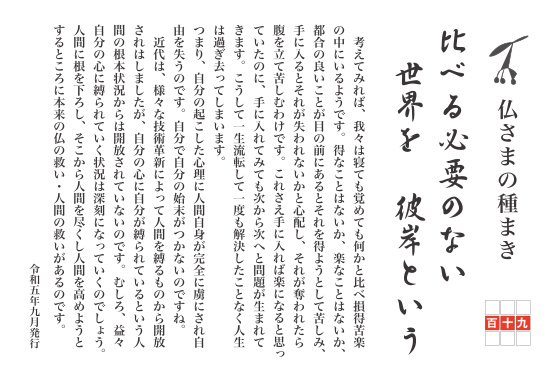 仏さまの種まき
百十九
比べる必要のない
世界を　彼岸という
　考えてみれば、我々は寝ても覚めても何かと比べ損得苦楽
の中にいるようです。得なことはないか、楽なことはないか、
都合の良いことが目の前にあるとそれを得ようとして苦しみ、
手に入るとそれが失われないかと心配し、それが奪われたら
腹を立て苦しむわけです。これさえ手に入れば楽になると思っ
ていたのに、手に入れてみても次から次へと問題が生まれて
きます。こうして一生流転して一度も解決したことなく人生
は過ぎ去ってしまいます。
つまり、自分の起こした心理に人間自身が完全に虜にされ自
由を失うのです。自分で自分の始末がつかないのですね。
　近代は、様々な技術革新によって人間を縛るものから開放
されはしましたが、自分の心に自分が縛られているという人
間の根本状況からは開放されていないのです。むしろ、益々
自分の心に縛られていく状況は深刻になっていくのでしょう。
人間に根を下ろし、そこから人間を尽くし人間を高めようと
するところに本来の仏の救い・人間の救いがあるのです。
令和五年九月発行